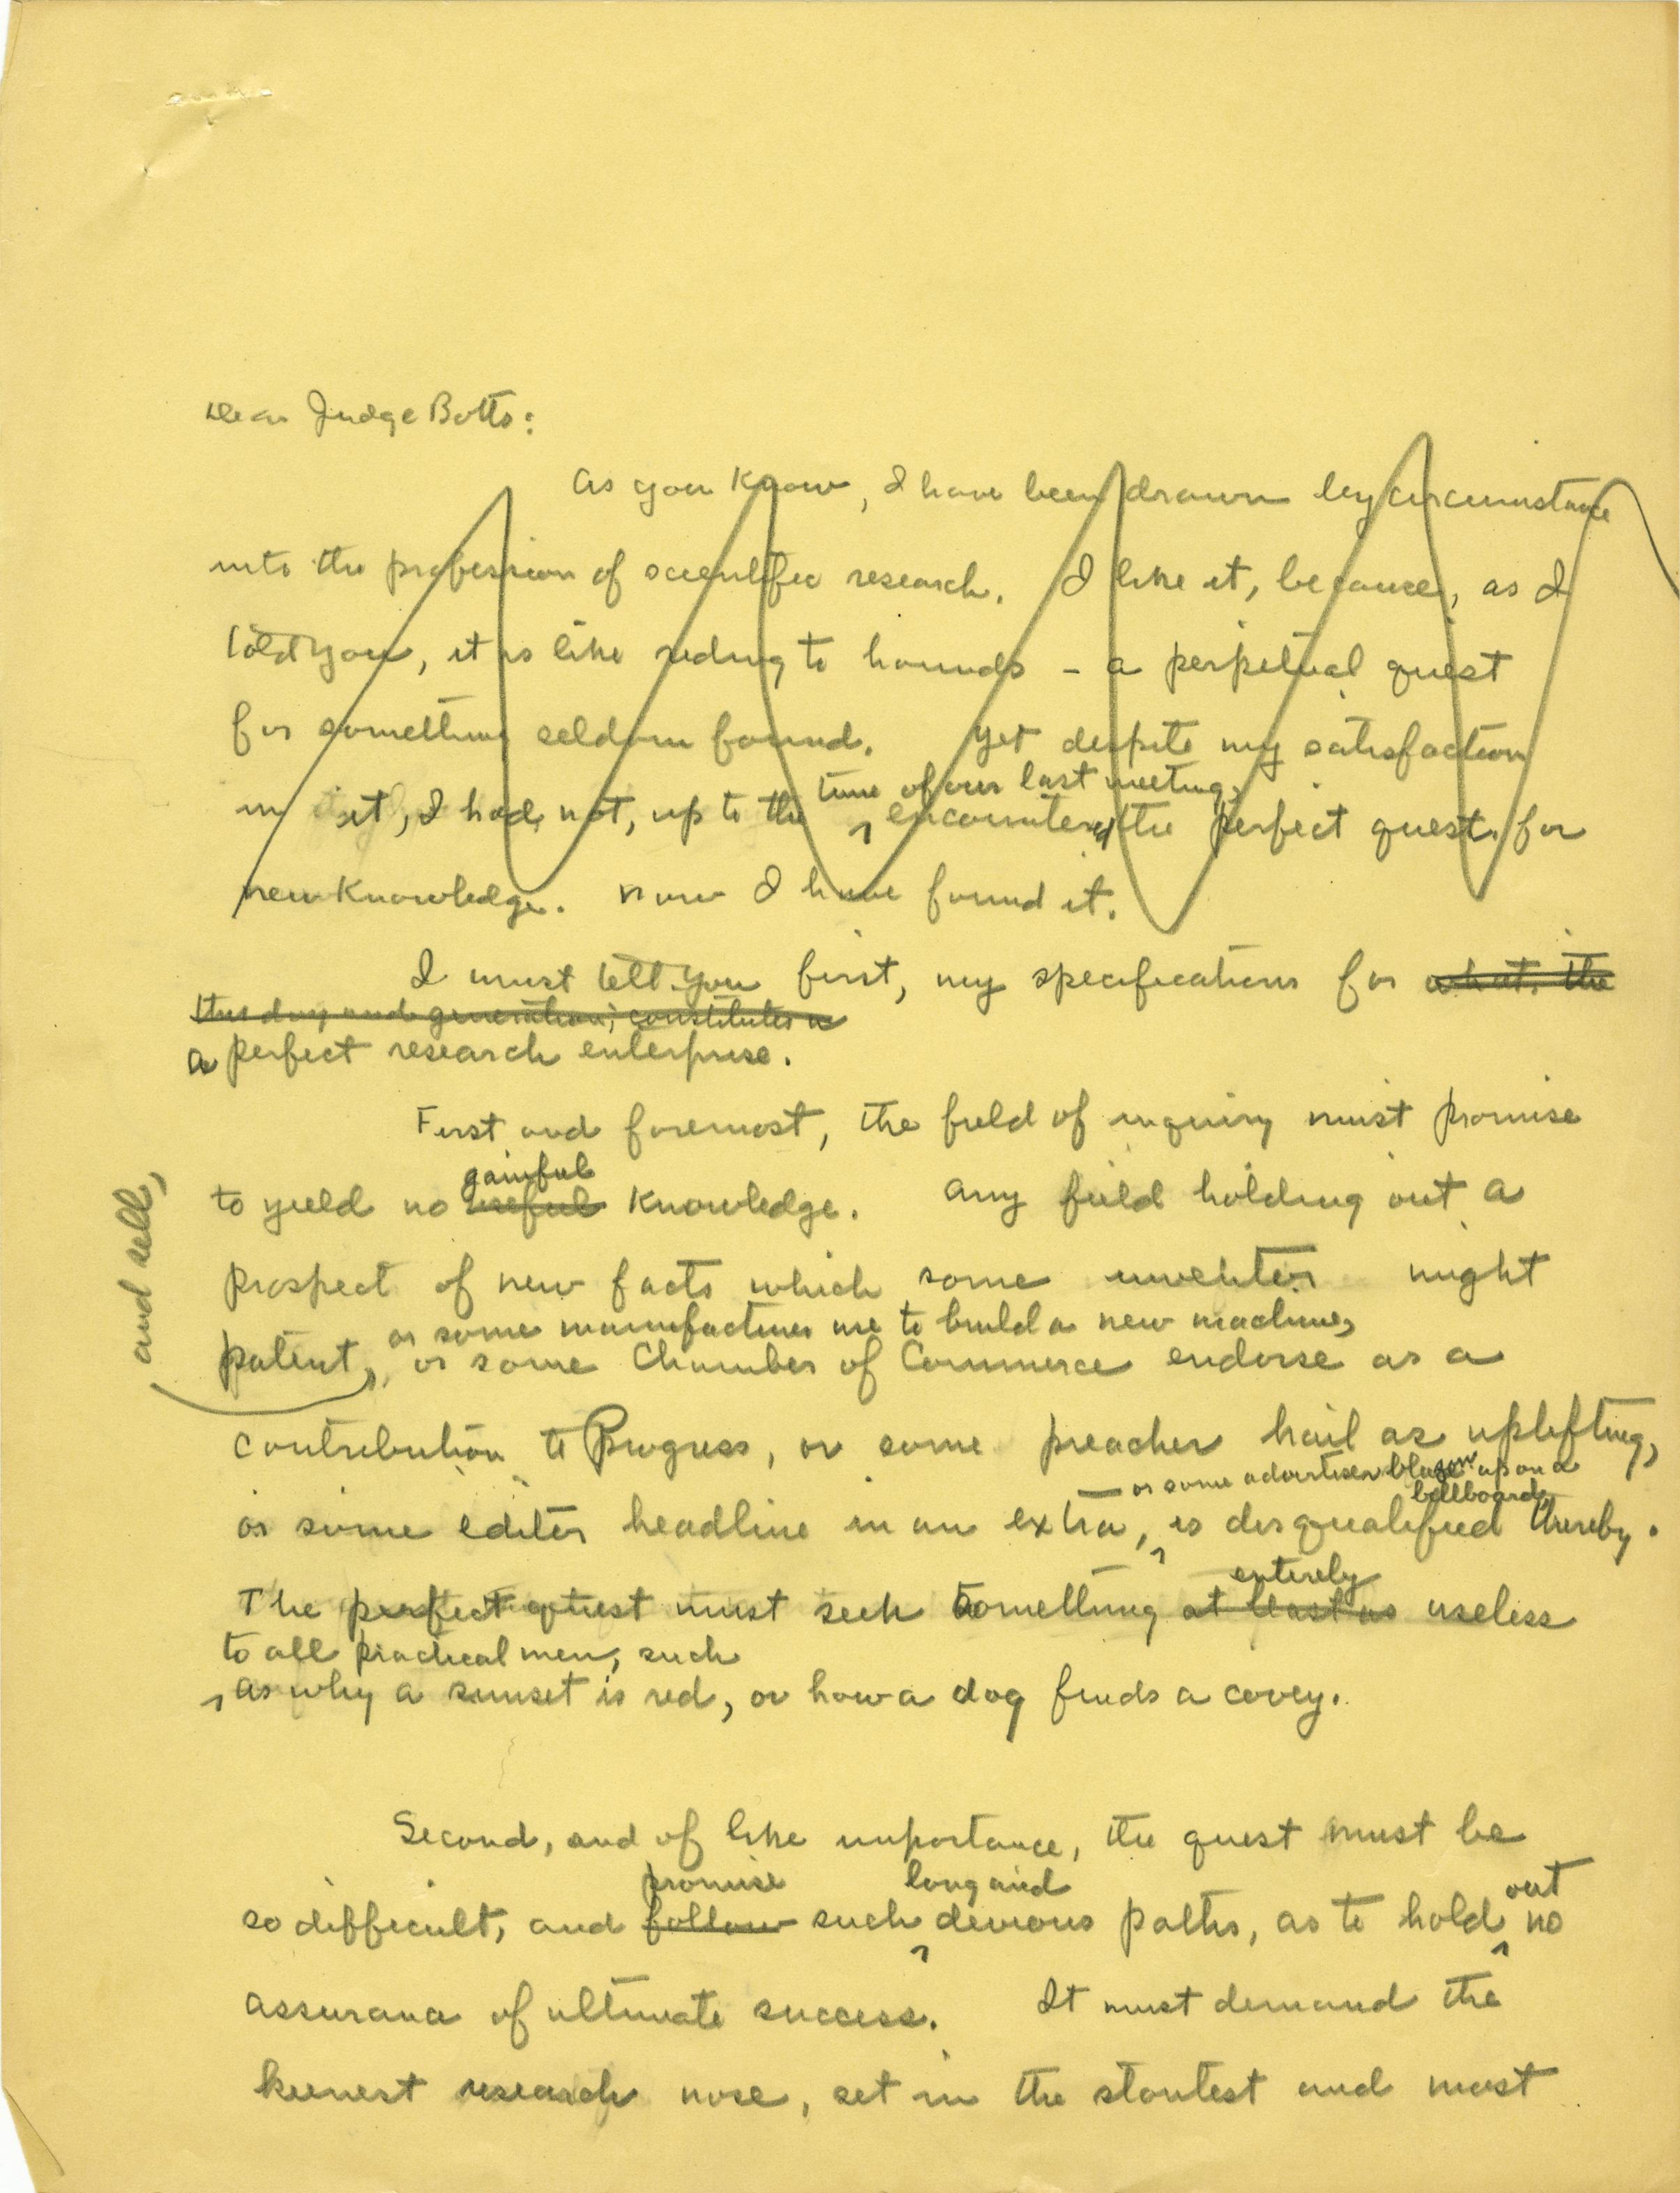 Dear Judge Botts:
As you know, I have been drawn by circumstance
into the profession of scientific research. I like it, because, as I
told you, it is like riding to hounds - a perpetual quest
for something seldom found. Yet despite my satisfaction
time of our last meeting,
in it, I had not, up to the encountered the perfect quest for
new knowledge. Now I have found it.
I must tell you first, my specifications for what, the
this day and generation, constitutes a
a perfect research enterprise.
First and foremost, the field of inquiry must promise
gainful
to yield no useful knowledge. Any field holding out a
prospect of new facts which some inventor might
and sell,
or some manufacturer use to build a new machine,
patent, or some Chamber of Commerce endorse as a
contribution to Progress, or some preacher hail as uplifting,
or some advertiser blazon upon a
billboard,
or some editor headline in an extra, is disqualified thereby.
entirely
The perfect quest must seek something at least as useless
to all practical men, such
as why a sunset is red, or how a dog finds a covey.
Second, and of like importance, the quest must be
promise long and out
so difficult, and follow such devious paths, as to hold no
assurance of ultimate success. It must demand the
keenest research nose, set in the stoutest and most